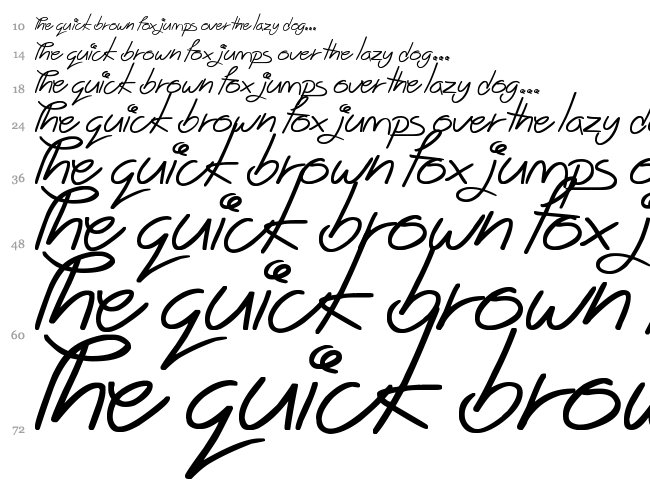 10 The quick brown fox jumps over the lazy dog...
14 The quick brown fox jumps over the lazy dog...
18 The quick brown fox jumps over the lazy dog...
24 The quick brown fox jumps over the lazy do
36 The quick brown fox jumps o
48 The quick brown fox j
60 The quick brown
72 The quick brow